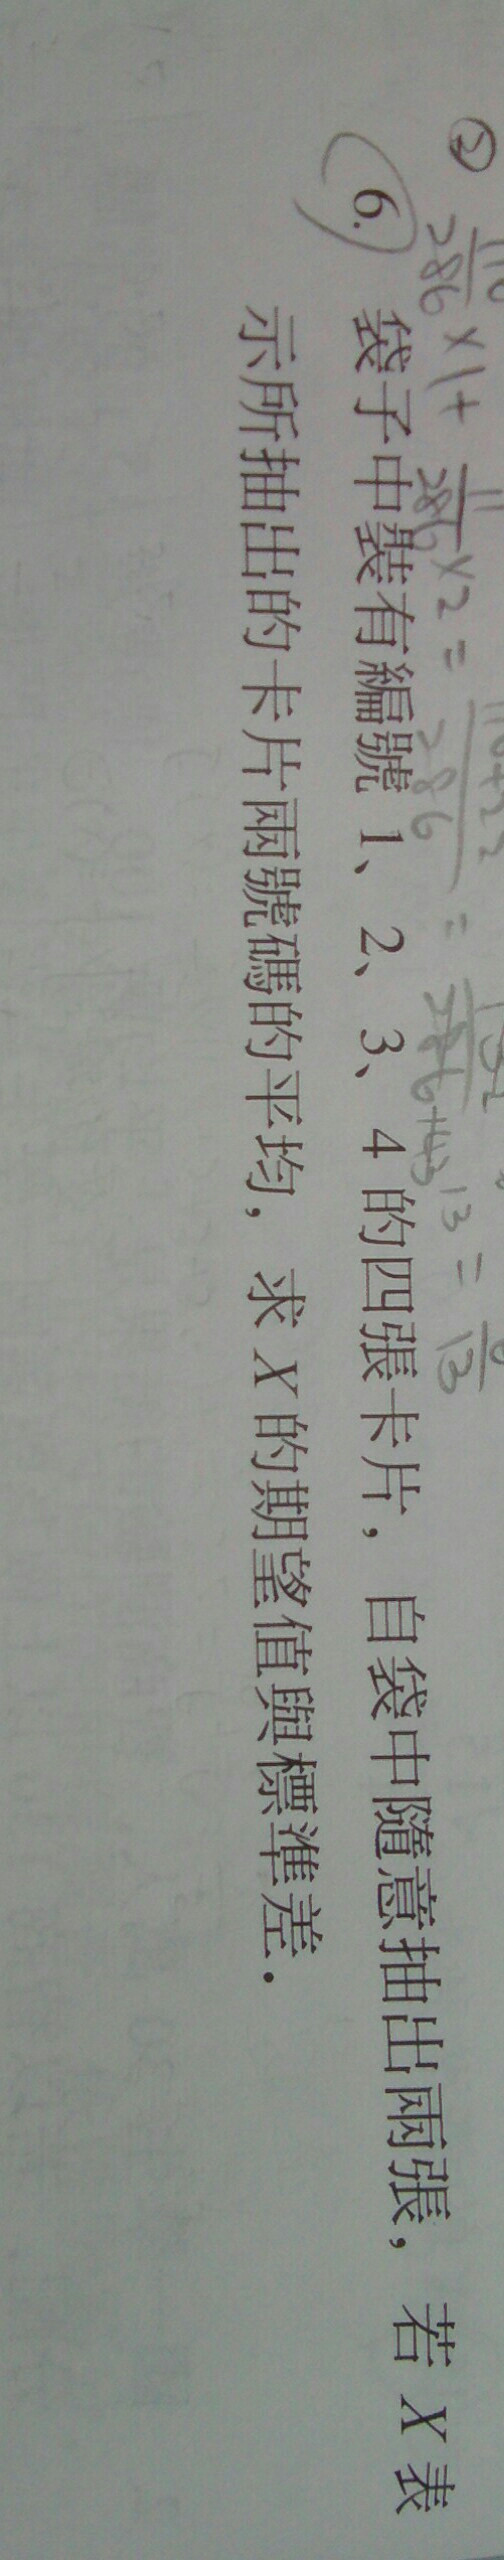 ② 110/286 ×1+ 11/286 ×2 = 110+22/286 = 132/286 = 6/13
6. 袋子中裝有編號 1、2、3、4 的四張卡片,自袋中隨意抽出兩張,若 X 表
示所抽出的卡片兩號碼的平均,求 X 的期望值與標準差.